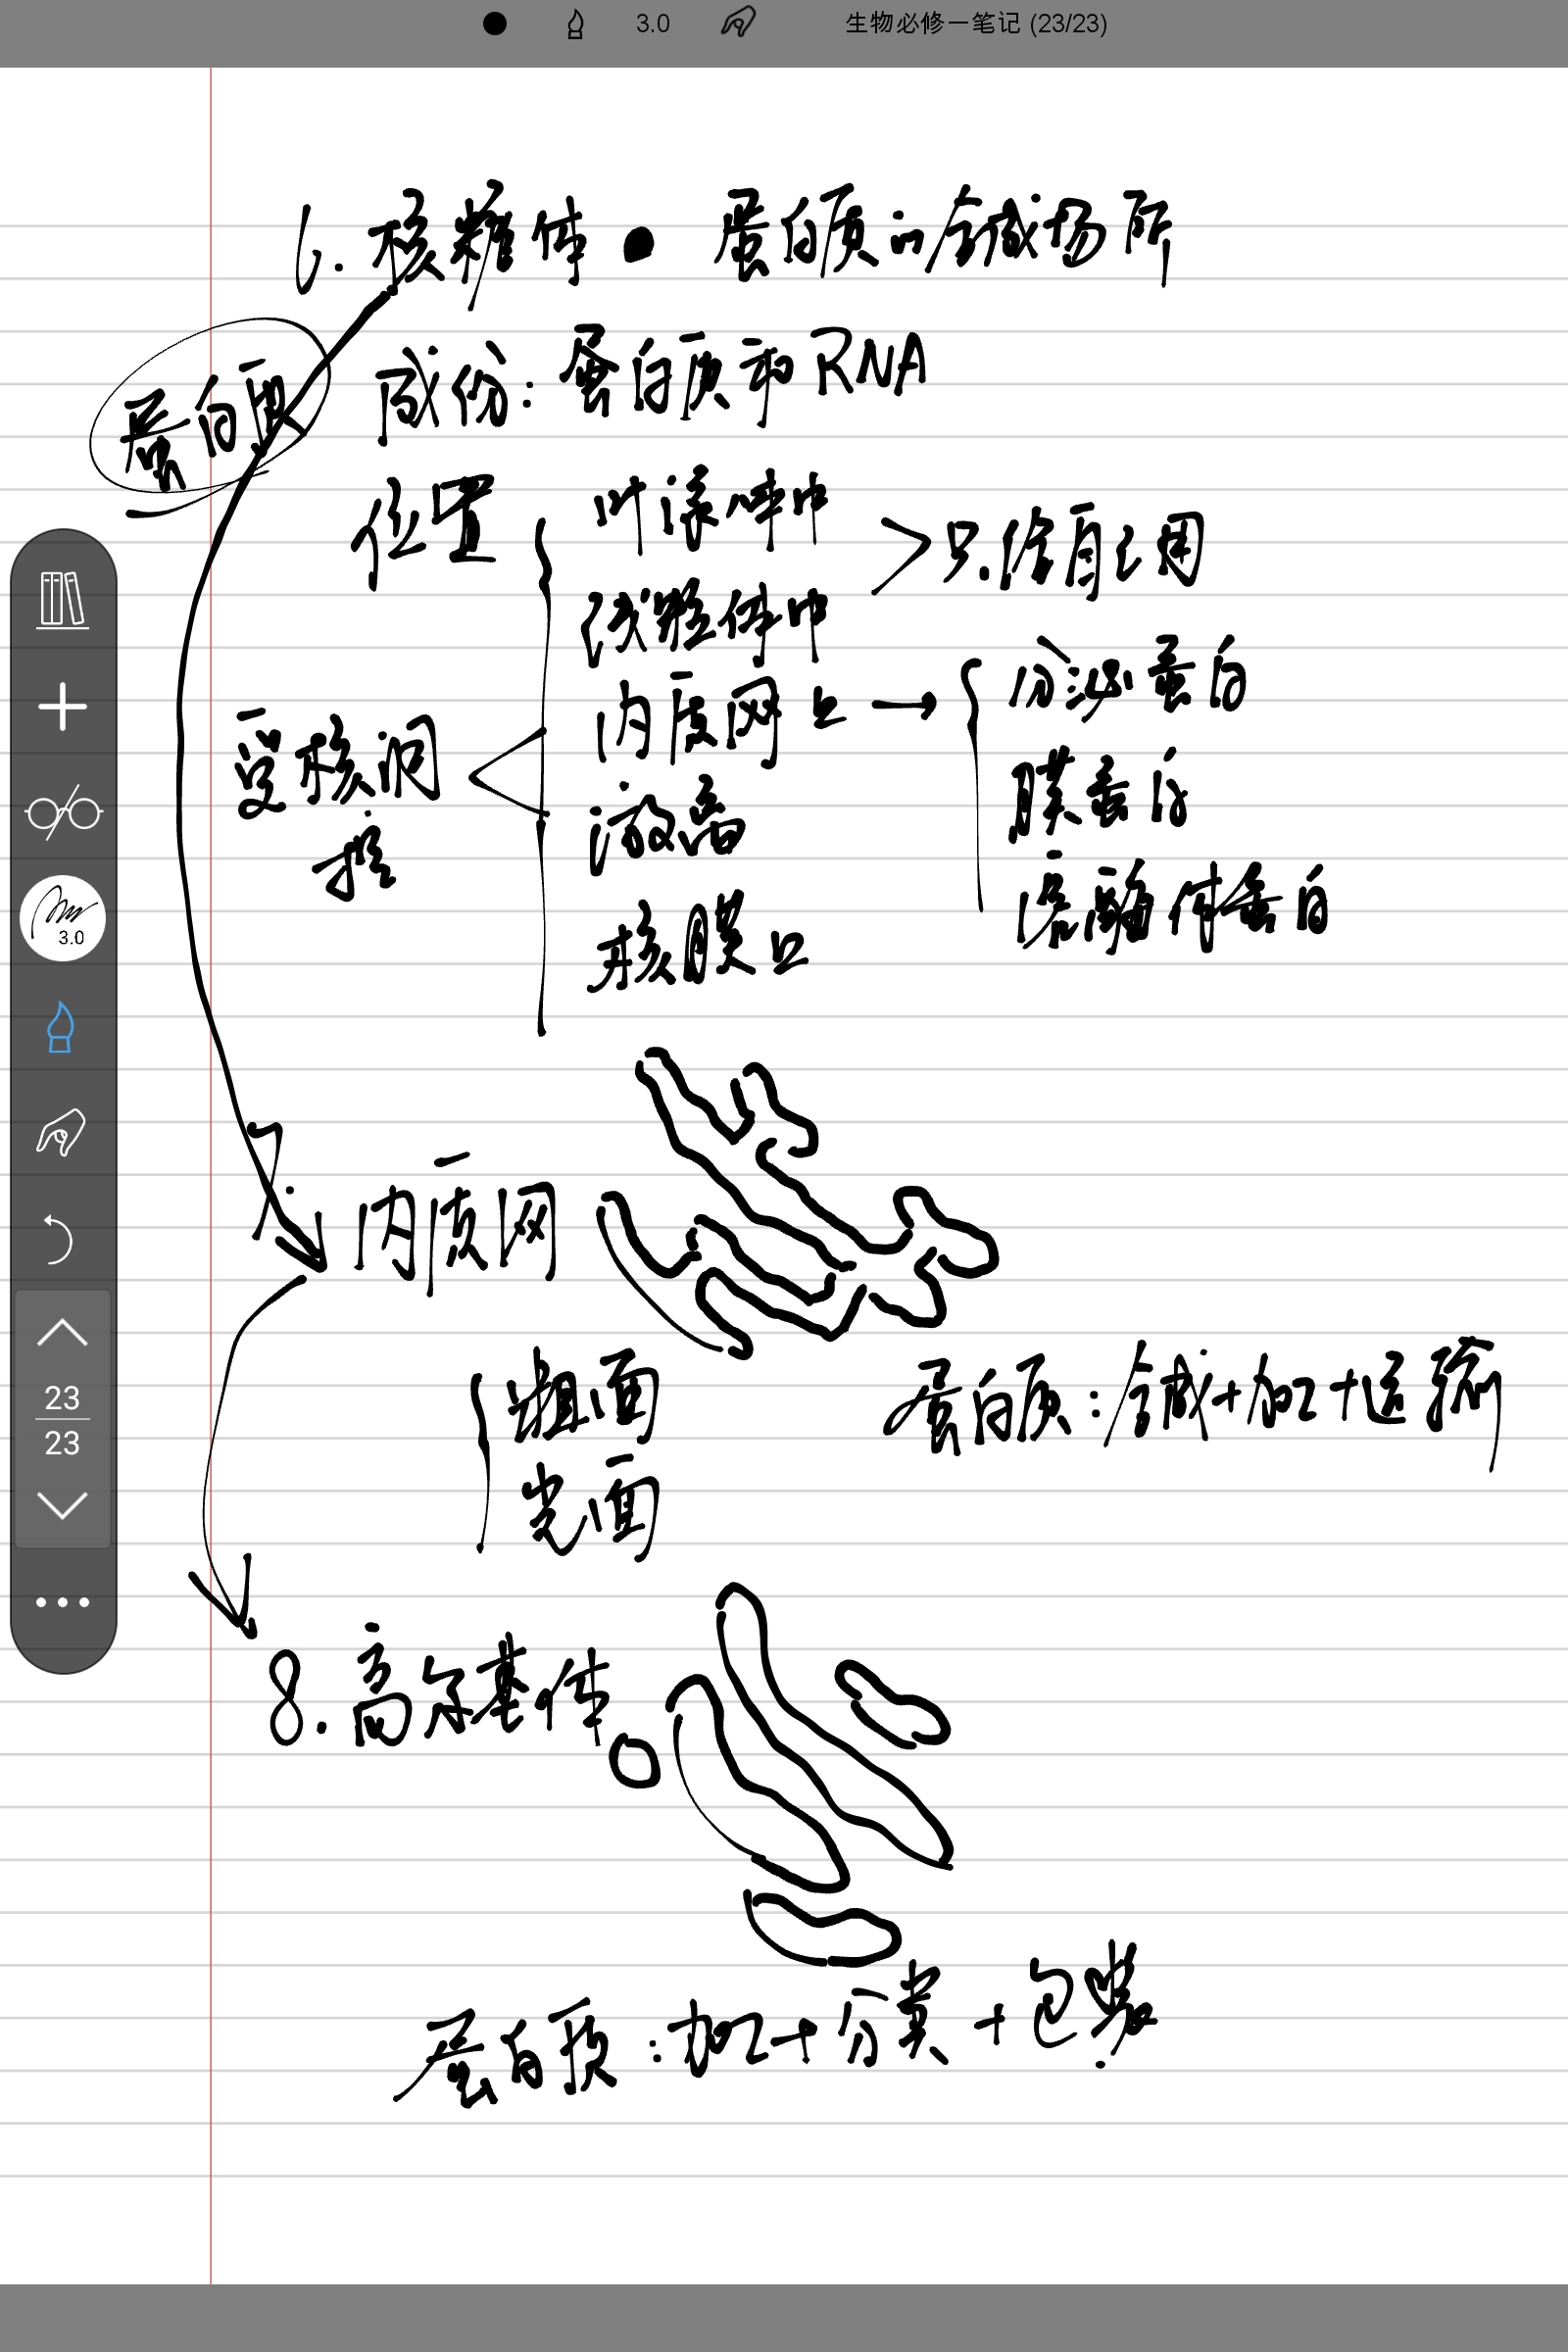 3.0 生物必修一笔记 (23/23)
6. 核糖体 ● 蛋白质的合成场所
蛋白质
成份: 蛋白质和RNA
位置
叶绿体中
线粒体中
只给自己用
内质网上 →
分泌蛋白
膜蛋白
溶酶体蛋白
受核调控
液态
核膜上
3.0
7. 内质网
23
23
粗面
光面
蛋白质: 合成+加工+运输
8. 高尔基体
蛋白质: 加工+分类+包装